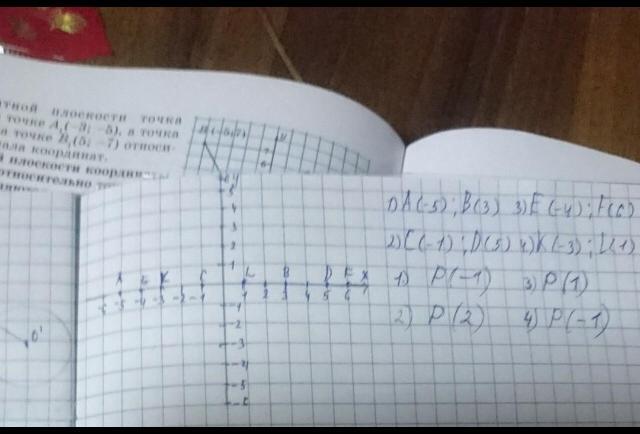 тной плоскости точка
точке A₁(−3; −5), а точка
а точке B₁(5; −7) относи-
ала координат.
плоскости
относительно
y
5
4
3
2
1
A E K C L B D F X
-6 -5 -4 -3 -2 -1 1 2 3 4 5 6 7
-1
-2
-3
-4
-5
-6
O'
1) A(-5); B(3) 3) E(-4); F(6)
2) C(-1); D(5) 4) K(-3); L(1)
1) P(-1) 3) P(1)
2) P(2) 4) P(-1)